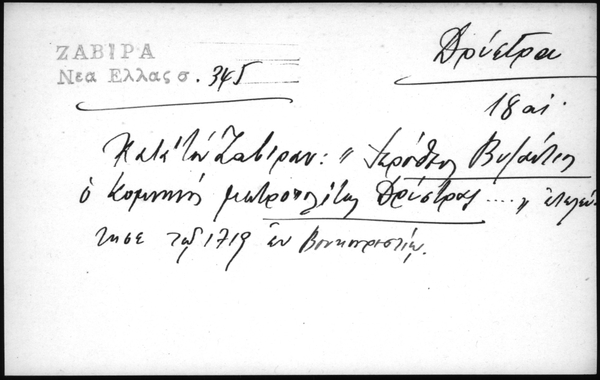 ΖΑΒΙΡΑ
Νεα Ελλας σ. 345
Δρύστρα
18 αἰ.
Κατὰ τὸν Ζαβίραν: "Ἱερόθεος Βυζάντιος
ὁ Κομνηνὸς μητροπολίτης Δρύστρας .... " ἐτελεύ-
τησε τῷ 1719 ἐν Βουκουρεστίῳ.